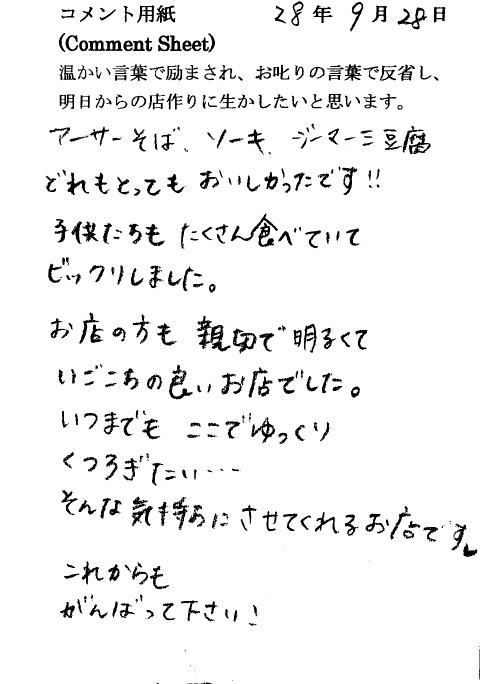 コメント用紙 28年 9月28日
(Comment Sheet)
温かい言葉で励まされ、お叱りの言葉で反省し、
明日からの店作りに生かしたいと思います。
アーサーそば、ソーキ、ジーマーミ豆腐
どれもとっても おいしかったです!!
子供たちも たくさん食べていて
ビックリしました。
お店の方も 親切で 明るくて
いごこちの良いお店でした。
いつまでも ここでゆっくり
くつろぎたい…
そんな気持ちにさせてくれるお店です。
これからも
がんばって下さい!